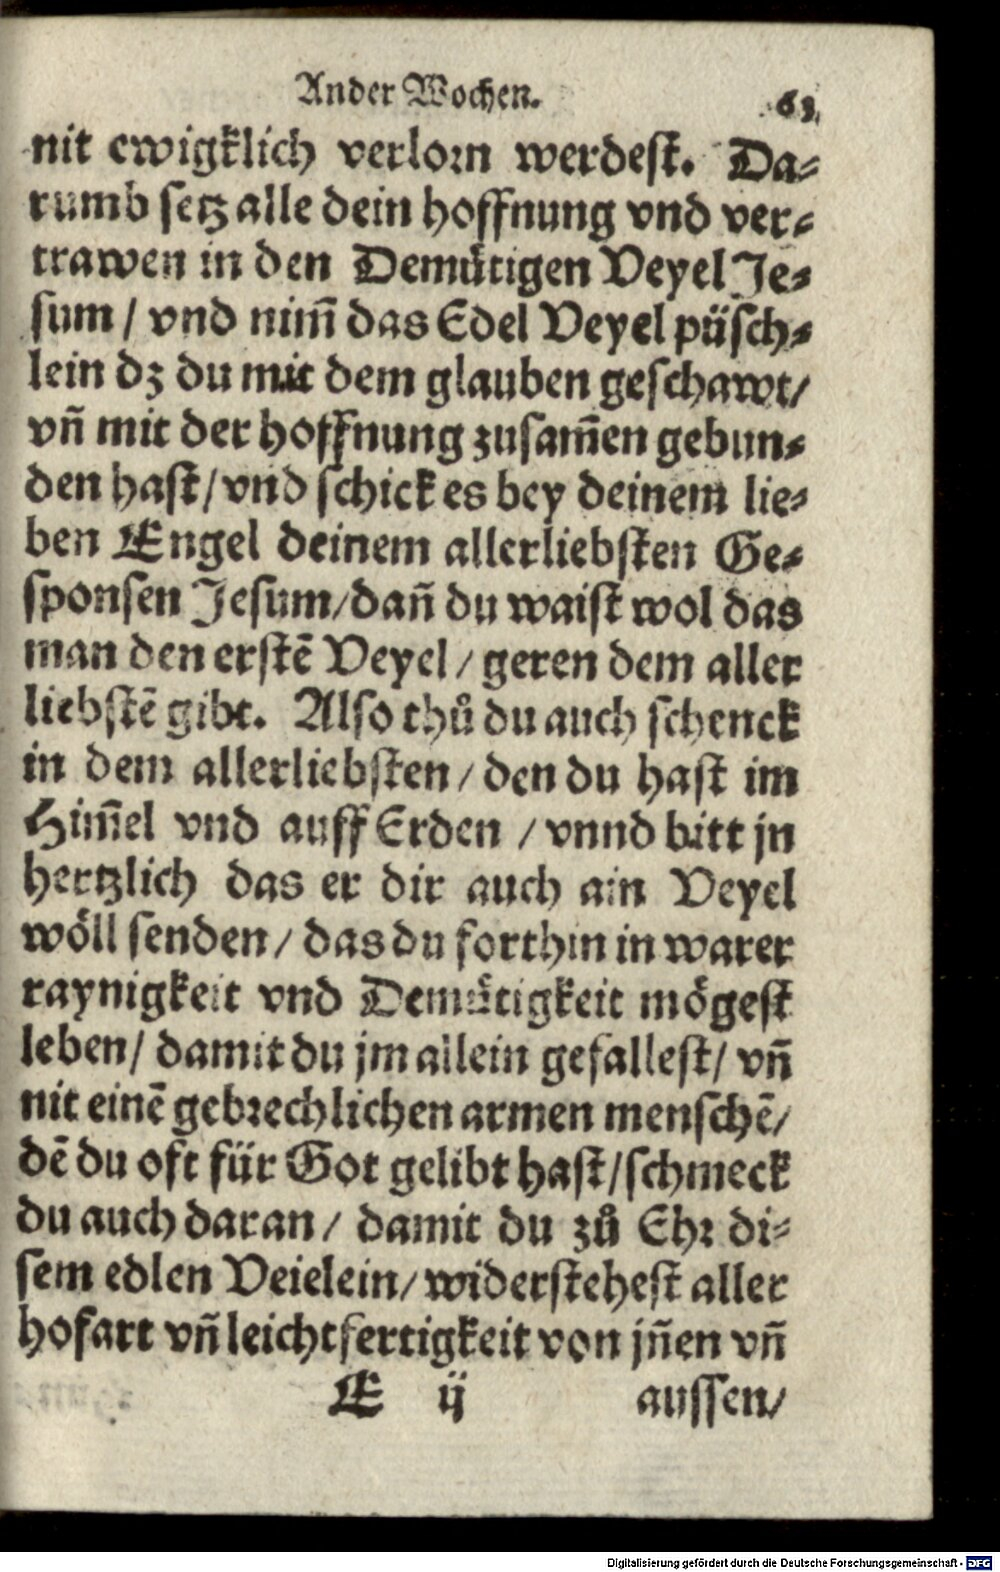 Ander Wochen. 63.
nit ewigklich verlorn werdest. Da-
rumb setz alle dein hoffnung vnd ver-
trawen in den Demütigen Veyel Je-
sum / vnd nim̃ das Edel Veyel püsch-
lein dz du mit dem glauben geschawt/
vñ mit der hoffnung zusam̃en gebun-
den hast/vnd schick es bey deinem lie-
ben Engel deinem allerliebsten Ge-
sponsen Jesum/dañ du waist wol das
man den erstẽ Veyel / geren dem aller
liebstẽ gibt. Also thů du auch schenck
in dem allerliebsten / den du hast im
Him̃el vnd auff Erden / vnnd bitt jn
hertzlich das er dir auch ain Veyel
wöll senden / das du forthin in warer
raynigkeit vnd Demütigkeit mögest
leben/ damit du jm allein gefallest/ vñ
nit einẽ gebrechlichen armen menschẽ/
dẽ du oft für Got gelibt hast/schmeck
du auch daran / damit du zů Ehr di-
sem edlen Veielein/ widerstehest aller
hofart vñ leichtfertigkeit von jñen vñ
E ij aussen/
Digitalisierung gefördert durch die Deutsche Forschungsgemeinschaft - DFG